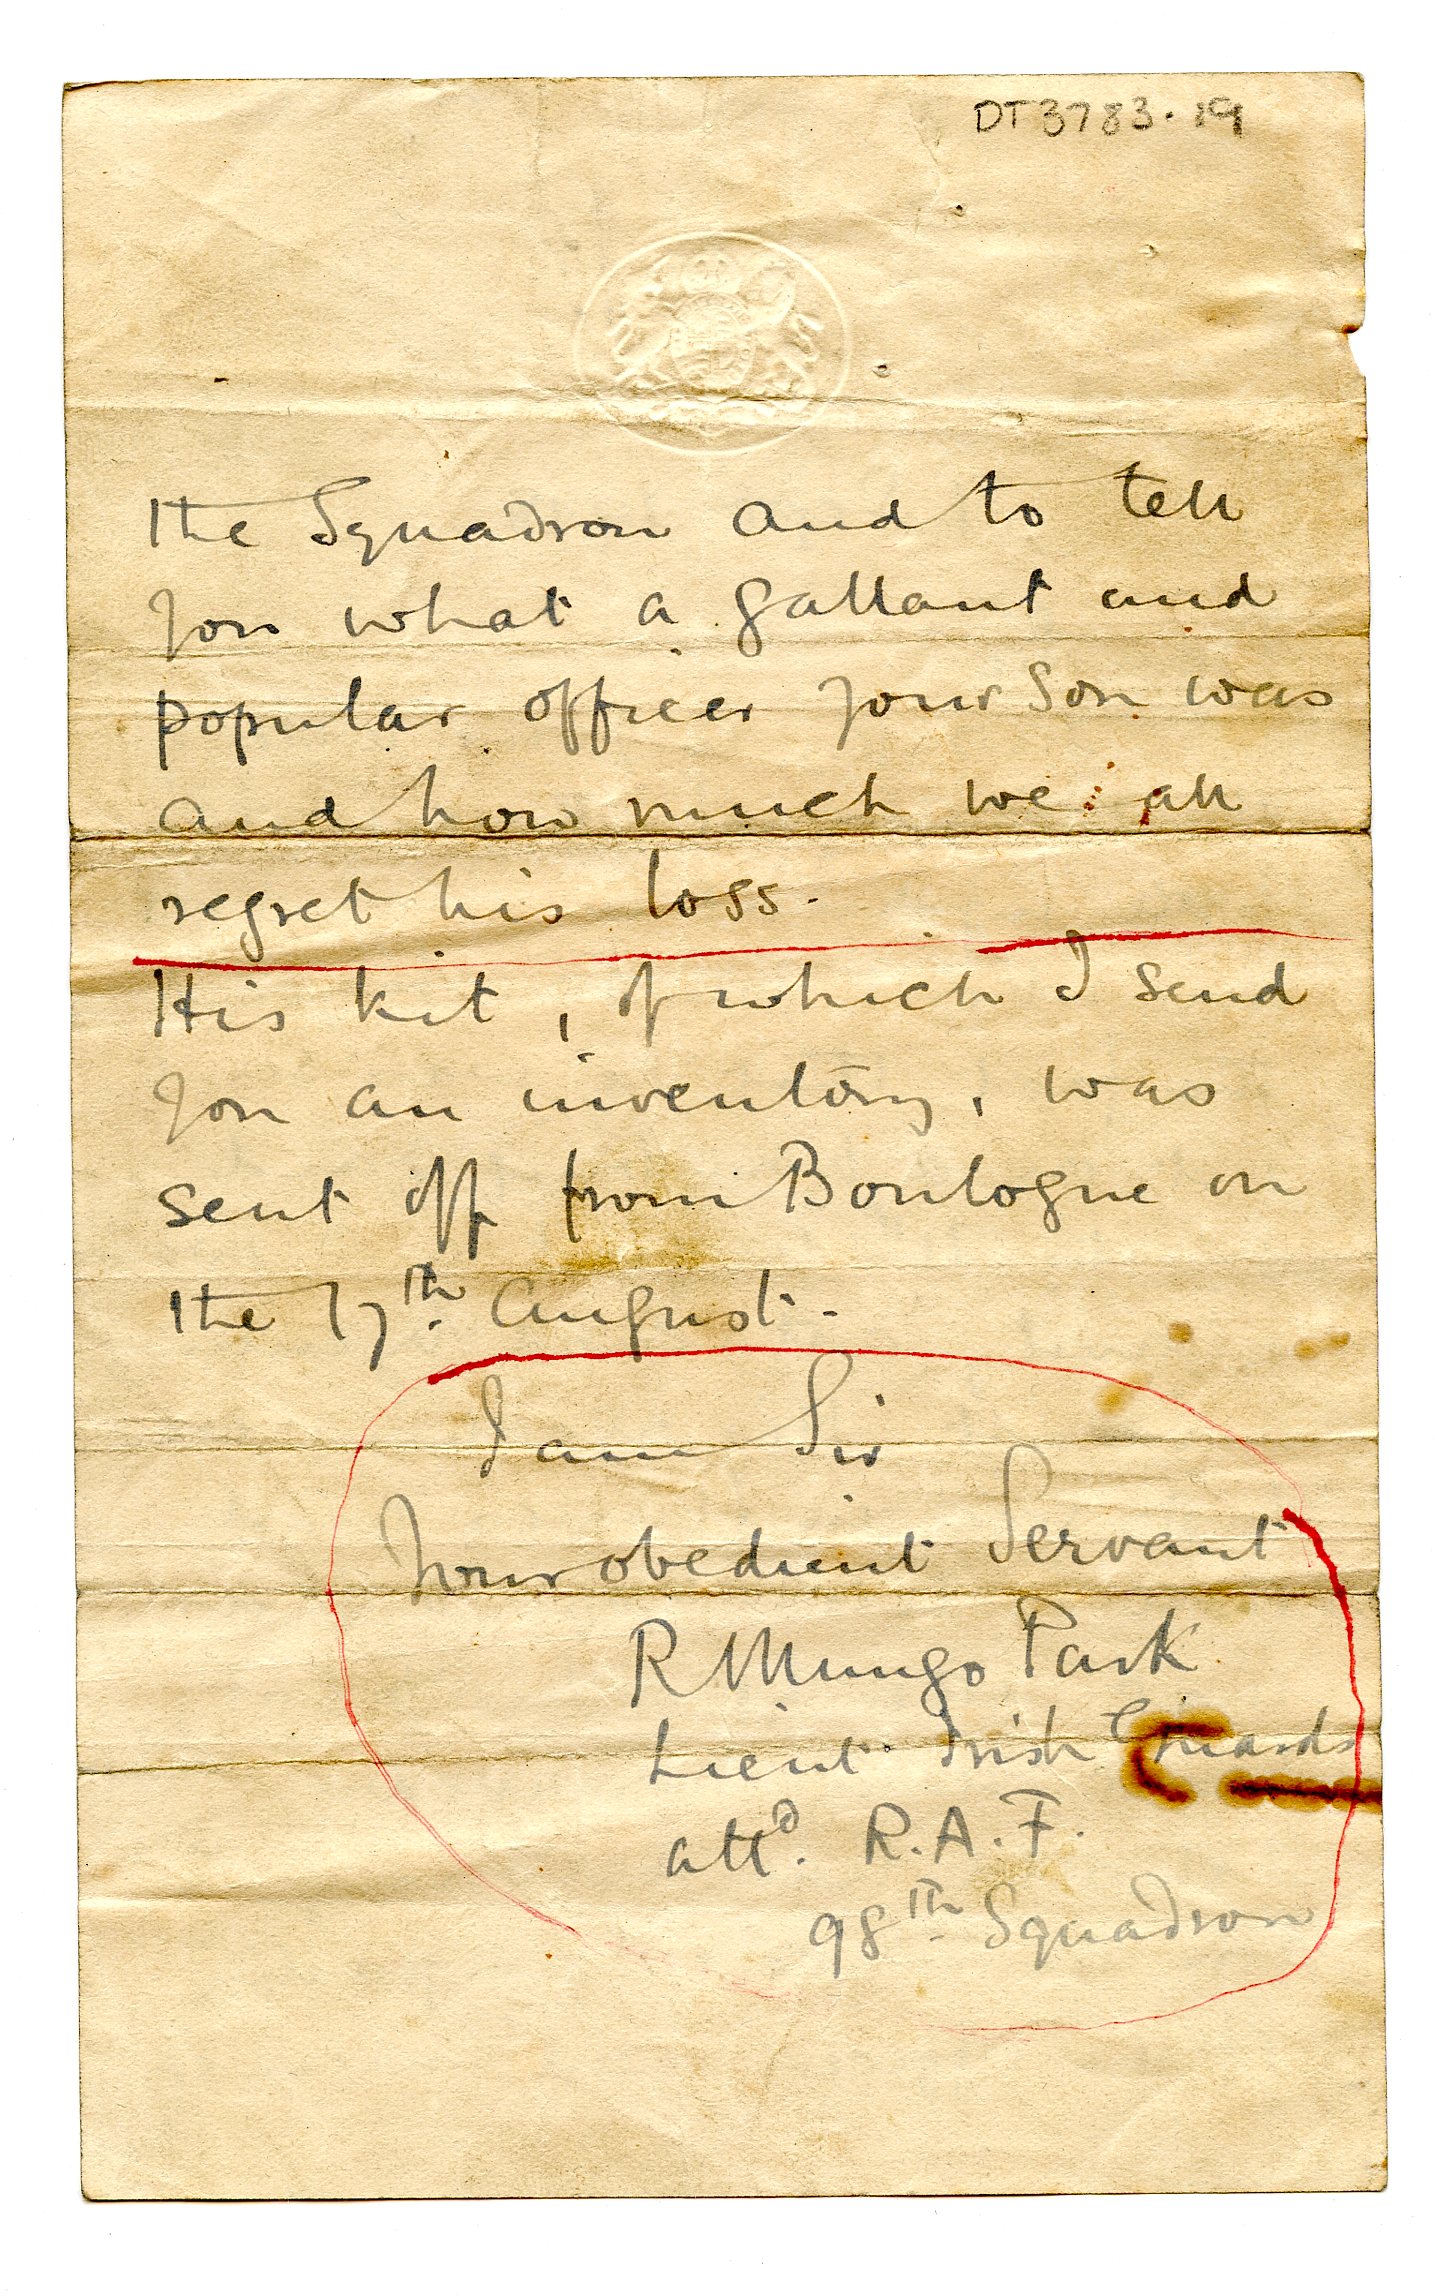 DT3783.19
the Squadron and to tell
you what a gallant and
popular officer your Son was
and how much we all
regret his loss.
His kit, of which I send
you an inventory, was
sent off from Boulogne on
the 17th. August.
I am Sir
Your obedient Servant
R Mungo Park
Lieut. Irish Guards
attd. R.A.F.
98th. Squadron